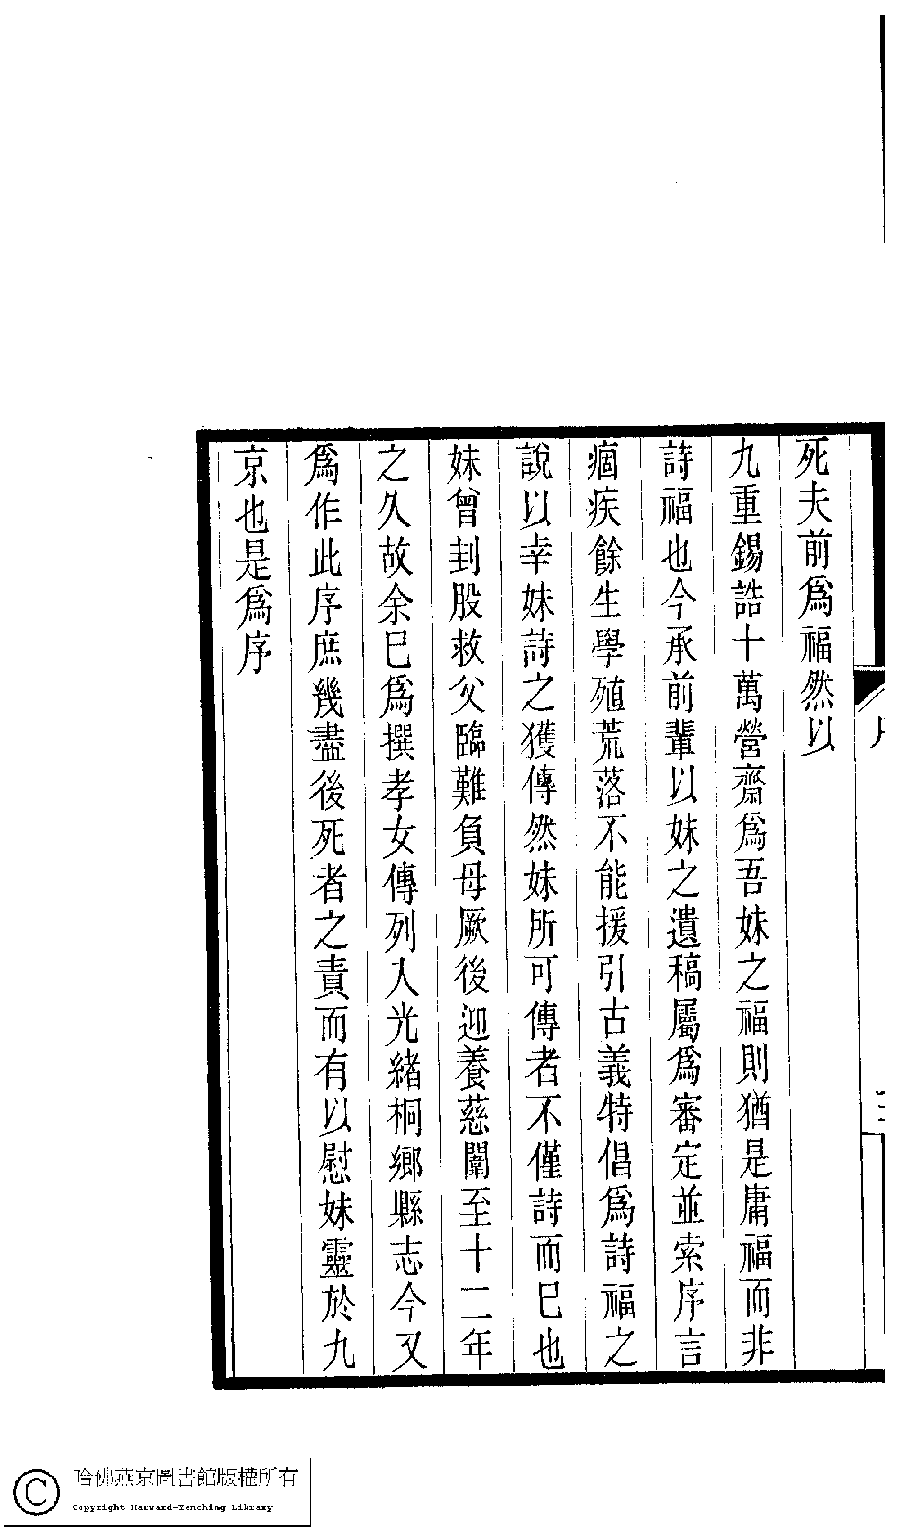 死夫前爲福然以
九重錫誥十萬營齋爲吾妹之福則猶是庸福而非
詩福也今承前輩以妹之遺稿屬爲審定並索序言
痼疾餘生學殖荒落不能援引古義特倡爲詩福之
說以幸妹詩之獲傳然妹所可傳者不僅詩而已也
妹曾刲股救父臨難負母厥後迎養慈闈至十二年
之久故余已爲撰孝女傳列入光緒桐鄉縣志今又
爲作此序庶幾盡後死者之責而有以慰妹靈於九
京也是爲序
哈佛燕京圖書館版權所有
Copyright Harvard-Yenching Library